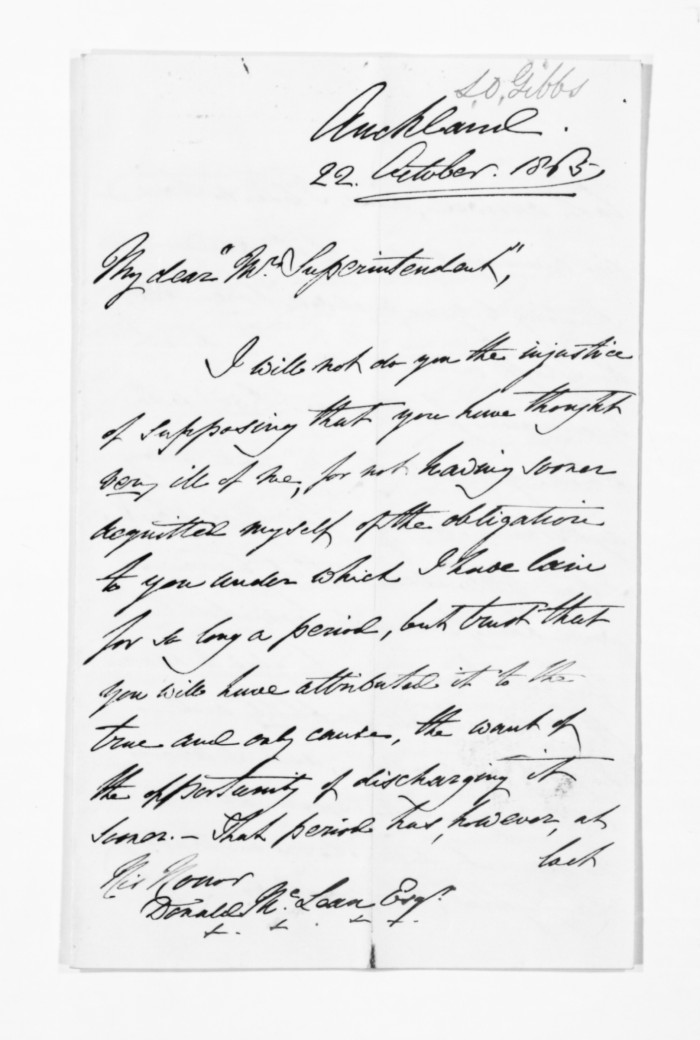 S. O. Gibbs
Auckland.
22. October. 1865,
My dear "Mr. Superintendent",
I will not do you the injustice
of supposing that you have thought
very ill of me, for not having sooner
acquitted myself of the obligation
to you under which I have lain
for so long a period, but trust that
you will have attributed it to the
true and only cause, the want of
the opportunity of discharging it
sooner. – That period has, however, at
last
His Honor
Donald McLean Esqr.